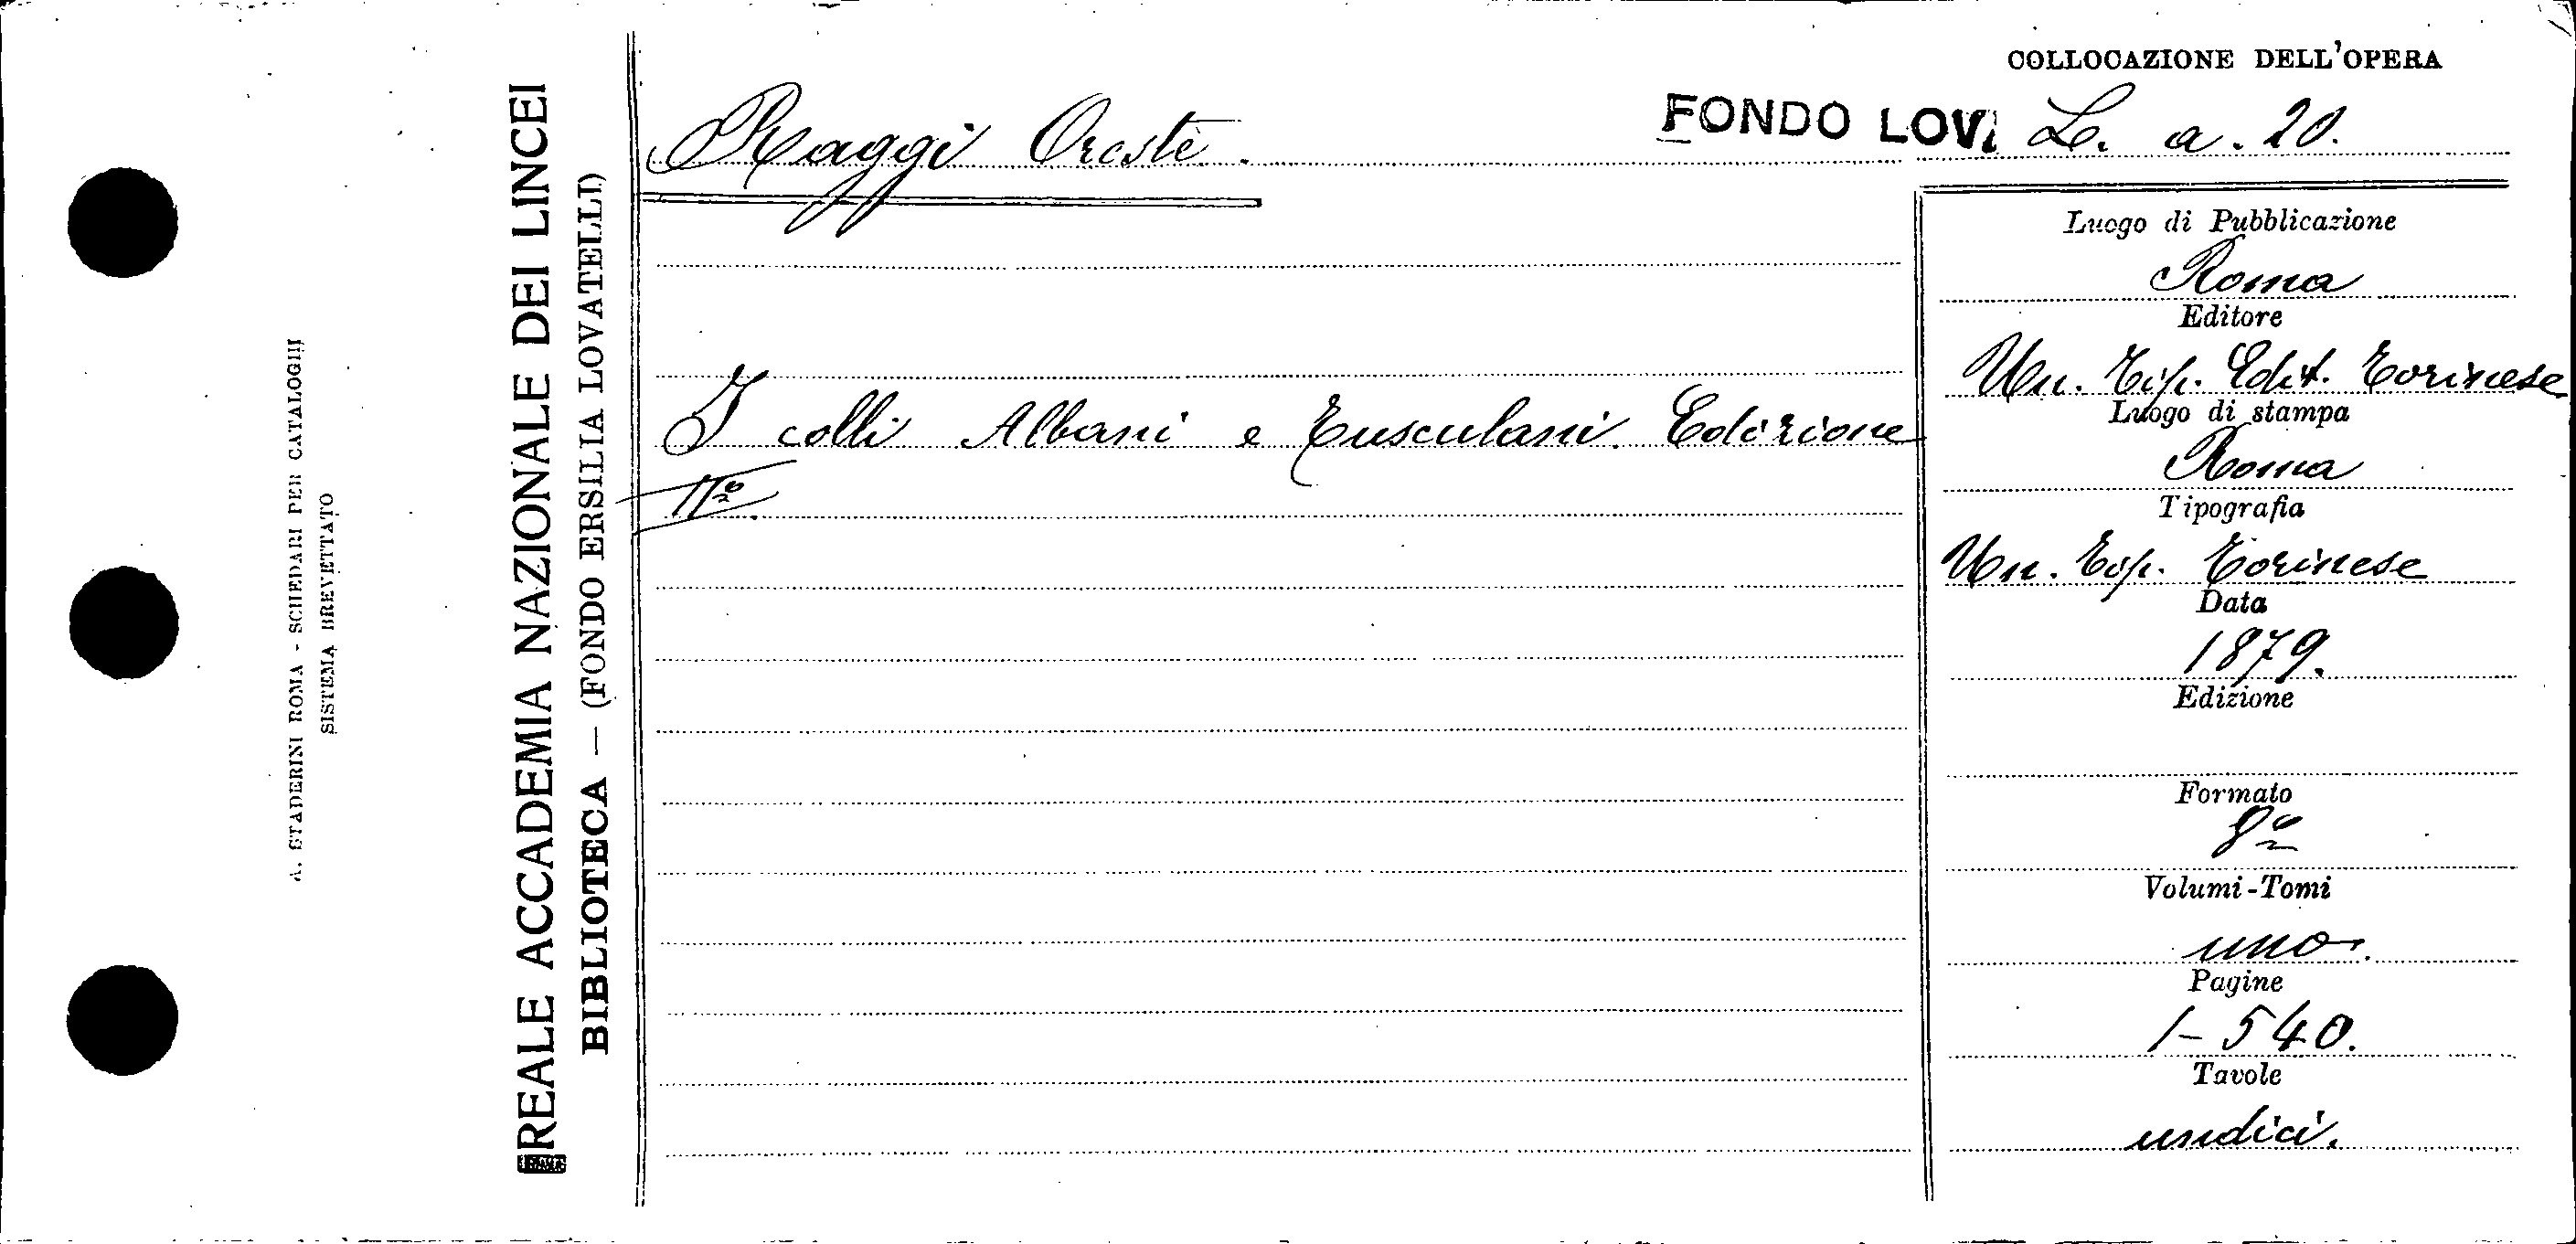 A. STADERINI ROMA - SCHEDARI PER CATALOGHI
SISTEMA BREVETTATO
REALE ACCADEMIA NAZIONALE DEI LINCEI
BIBLIOTECA — (FONDO ERSILIA LOVATELLI)
COLLOCAZIONE DELL'OPERA
FONDO LOV. L. a. 20.
Raggi Oreste.
I colli Albani e Tusculani. Edizione
IIª.
Luogo di Pubblicazione
Roma
Editore
Un. Tip. Edit. Torinese
Luogo di stampa
Roma
Tipografia
Un. Tip. Torinese
Data
1879.
Edizione
Formato
8º
Volumi-Tomi
uno.
Pagine
1-540.
Tavole
undici.